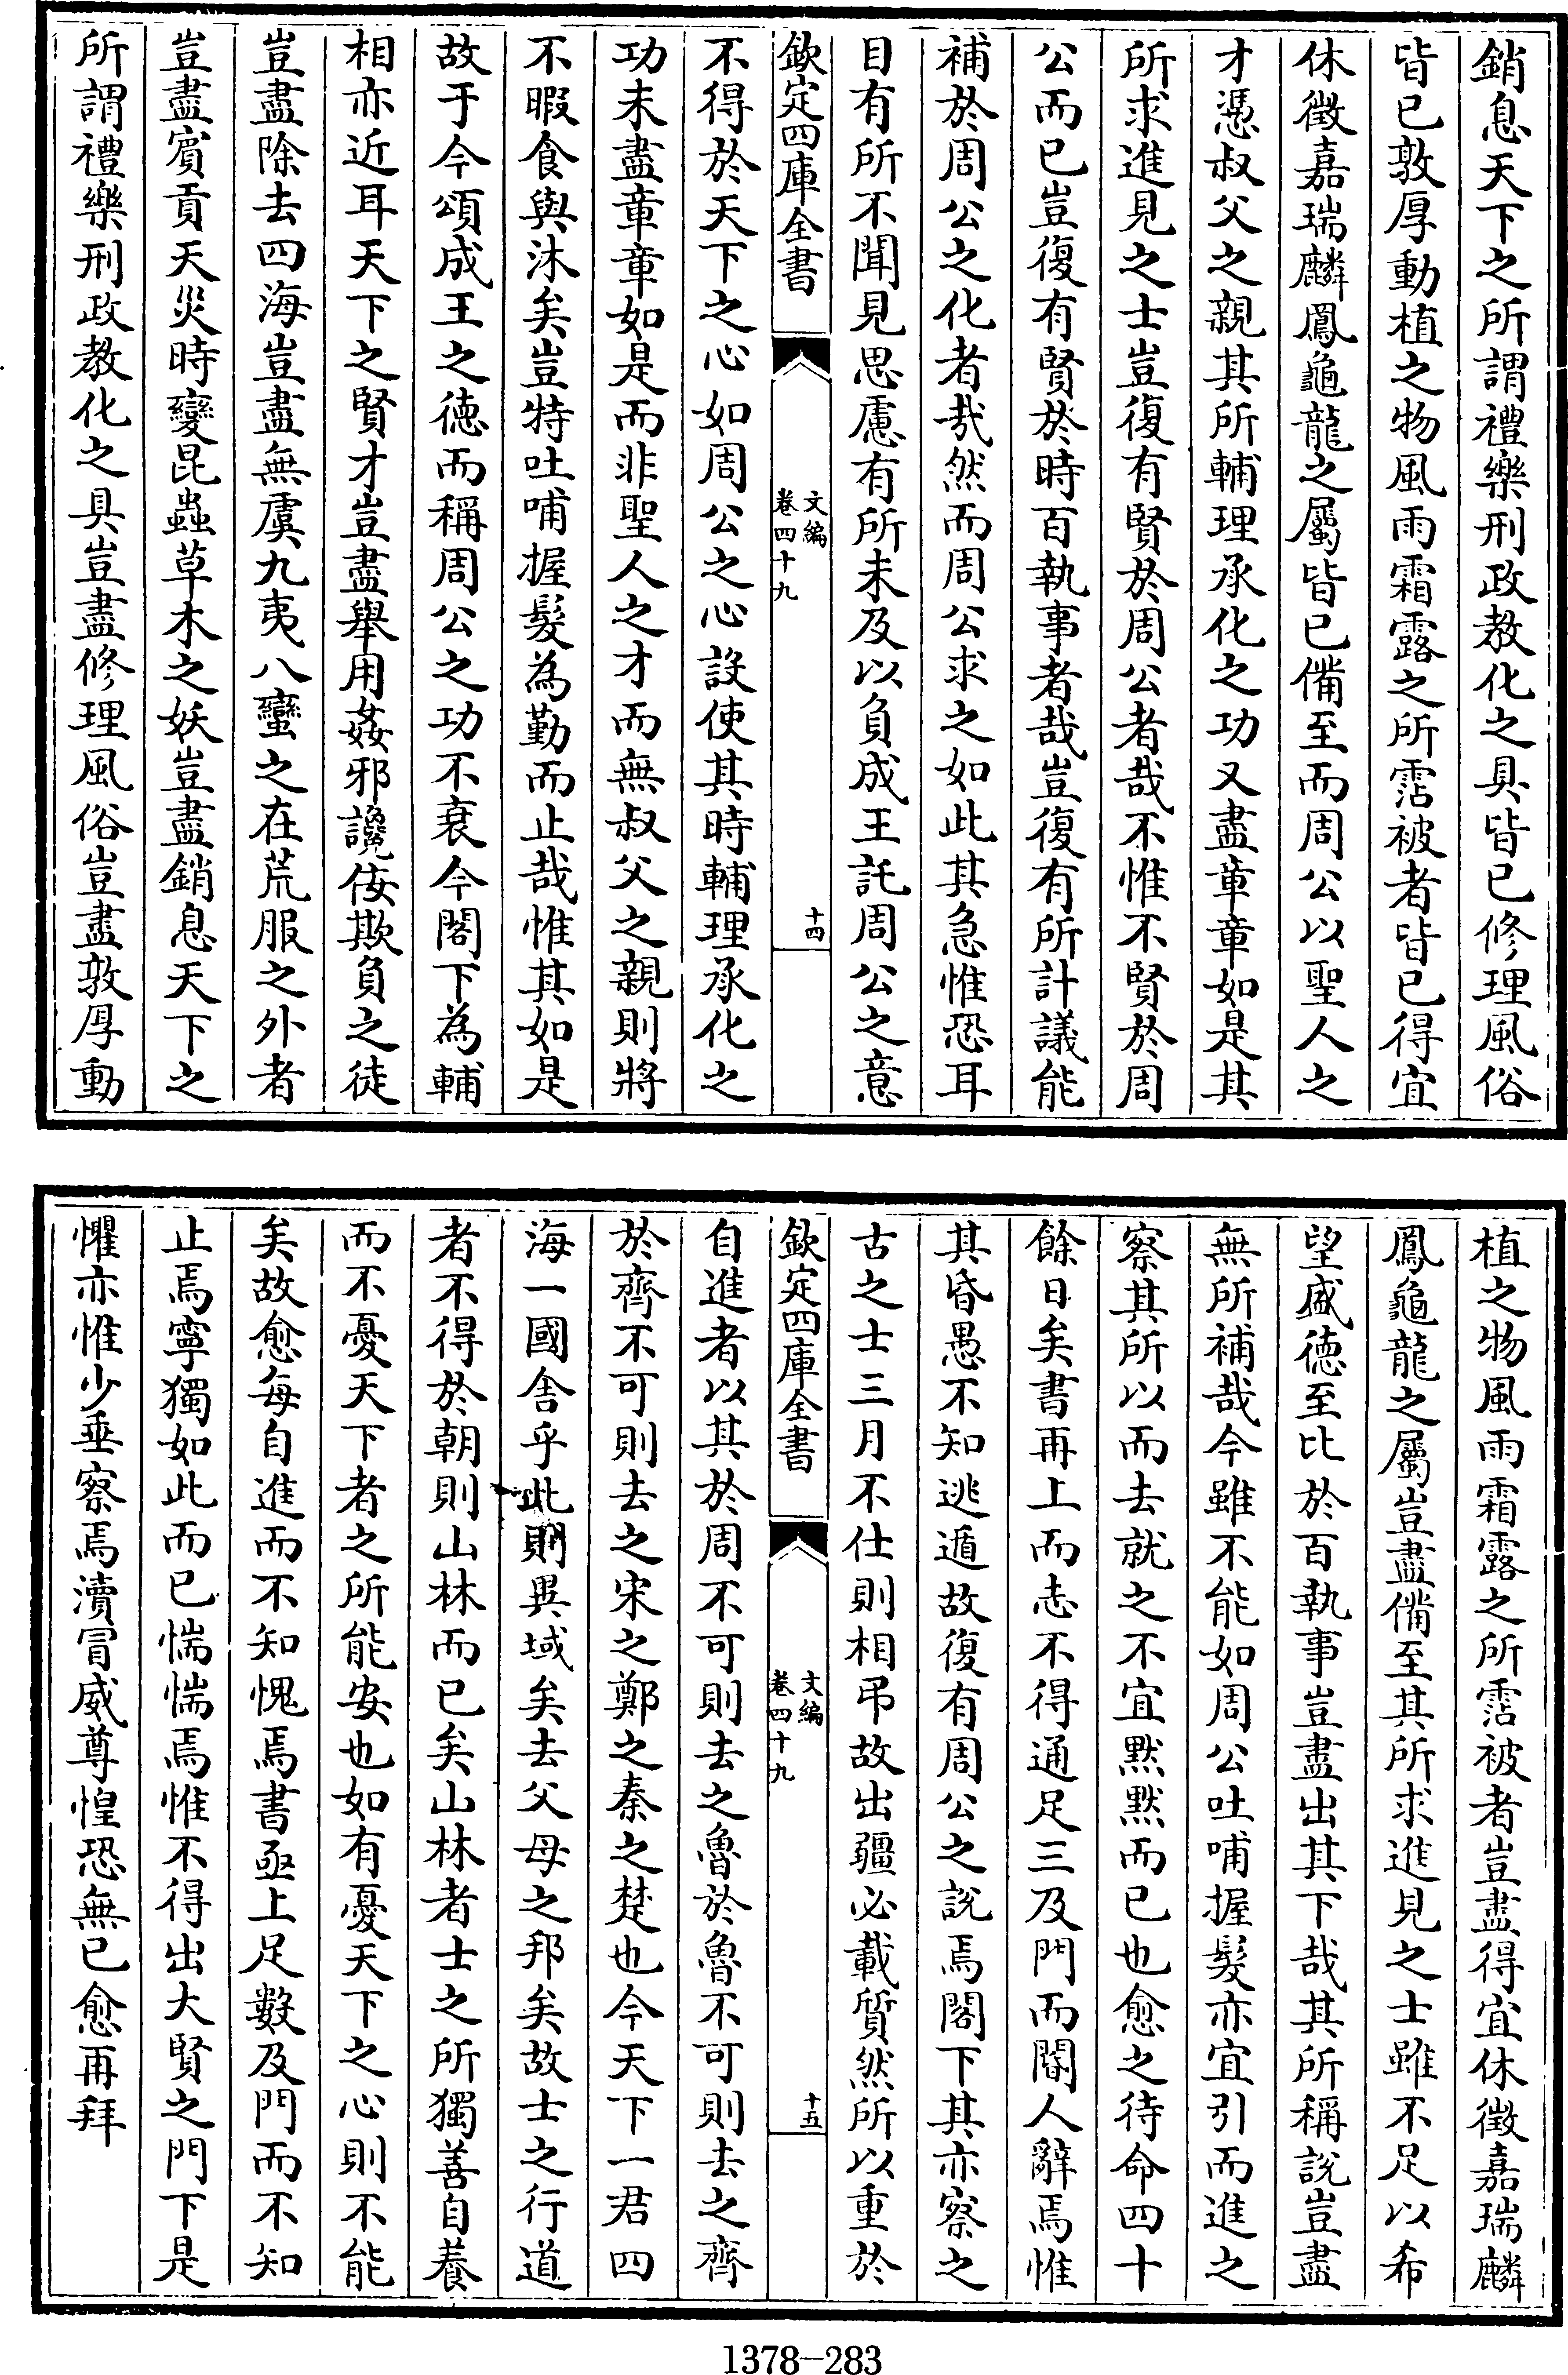 銷息天下之所謂禮樂刑政教化之具皆已修理風俗
皆已敦厚動植之物風雨霜露之所霑被者皆已得宜
休徵嘉瑞麟鳳龜龍之屬皆已備至而周公以聖人之
才憑叔父之親其所輔理承化之功又盡章章如是其
所求進見之士豈復有賢於周公者哉不惟不賢於周
公而已豈復有賢於時百執事者哉豈復有所計議能
補於周公之化者哉然而周公求之如此其急惟恐耳
目有所不聞見思慮有所未及以負成王託周公之意
欽定四庫全書
文編
卷四十九
十四
不得於天下之心如周公之心設使其時輔理承化之
功未盡章章如是而非聖人之才而無叔父之親則將
不暇食與沐矣豈特吐哺握髮為勤而止哉惟其如是
故于今頌成王之德而稱周公之功不衰今閣下為輔
相亦近耳天下之賢才豈盡舉用姦邪讒佞欺負之徒
豈盡除去四海豈盡無虞九夷八蠻之在荒服之外者
豈盡賓貢天災時變昆蟲草木之妖豈盡銷息天下之
所謂禮樂刑政教化之具豈盡修理風俗豈盡敦厚動
植之物風雨霜露之所霑被者豈盡得宜休徵嘉瑞麟
鳳龜龍之屬豈盡備至其所求進見之士雖不足以希
望盛德至比於百執事豈盡出其下哉其所稱說豈盡
無所補哉今雖不能如周公吐哺握髮亦宜引而進之
察其所以而去就之不宜默默而已也愈之待命四十
餘日矣書再上而志不得通足三及門而閽人辭焉惟
其昏愚不知逃遁故復有周公之說焉閣下其亦察之
古之士三月不仕則相弔故出疆必載質然所以重於
欽定四庫全書
文編
卷四十九
十五
自進者以其於周不可則去之魯於魯不可則去之齊
於齊不可則去之宋之鄭之秦之楚也今天下一君四
海一國舍乎此則異域矣去父母之邦矣故士之行道
者不得於朝則山林而已矣山林者士之所獨善自養
而不憂天下者之所能安也如有憂天下之心則不能
矣故愈每自進而不知愧焉書亟上足數及門而不知
止焉寧獨如此而已惴惴焉惟不得出大賢之門下是
懼亦惟少垂察焉瀆冒威尊惶恐無已愈再拜
1378-283